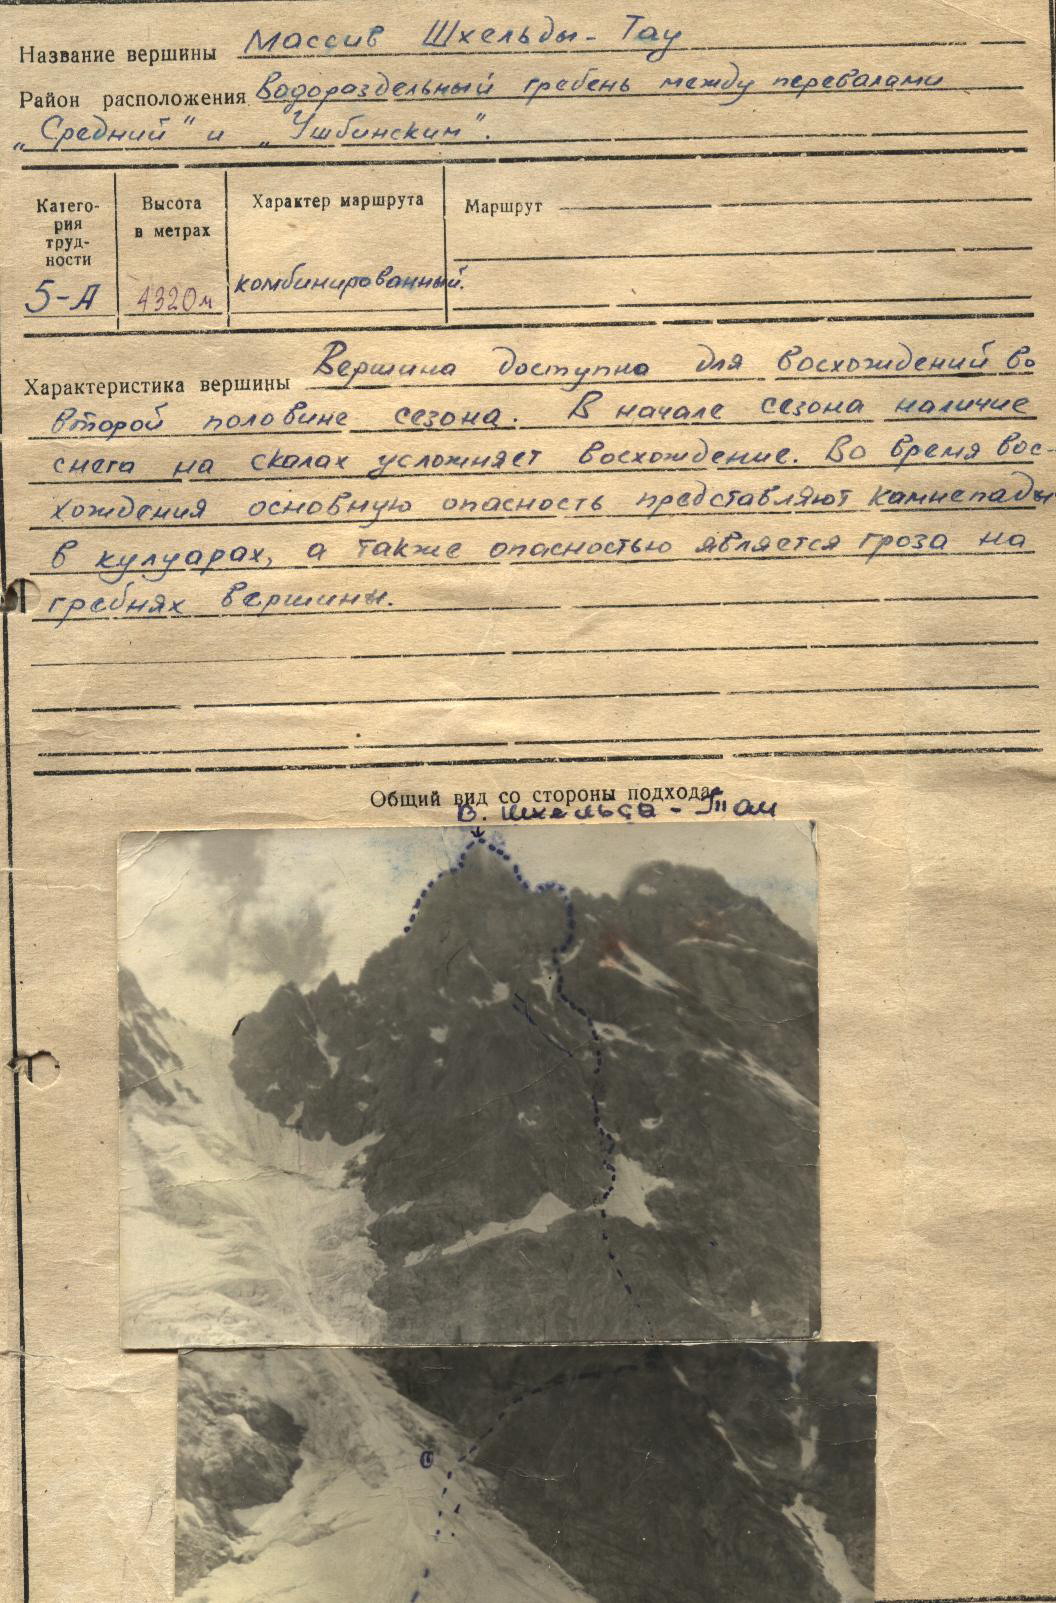 Название вершины Массив Шхельды-Тау
Район расположения Водораздельный гребень между перевалами
„Средний" и „Ушбинским".
Катего-
рия
труд-
ности
Высота
в метрах
Характер маршрута
Маршрут
5-А
4320м
комбинированный.
Характеристика вершины Вершина доступна для восхождений во
второй половине сезона. В начале сезона наличие
снега на скалах усложняет восхождение. Во время вос-
хождения основную опасность представляют камнепады
в кулуарах, а также опасностью является гроза на
гребнях вершины.
Общий вид со стороны подхода
В. Шхельда-Тау